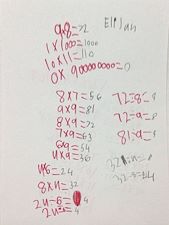 9×8=72 Elijah
1×1000=1000
10×11=110
0×900000000=0
8×7=56
9×9=81
8×9=72
7×9=63
6×9=54
4×9=36
4×6=24
8×4=32
72÷8=9
72÷9=8
81÷9=9
32÷4=8